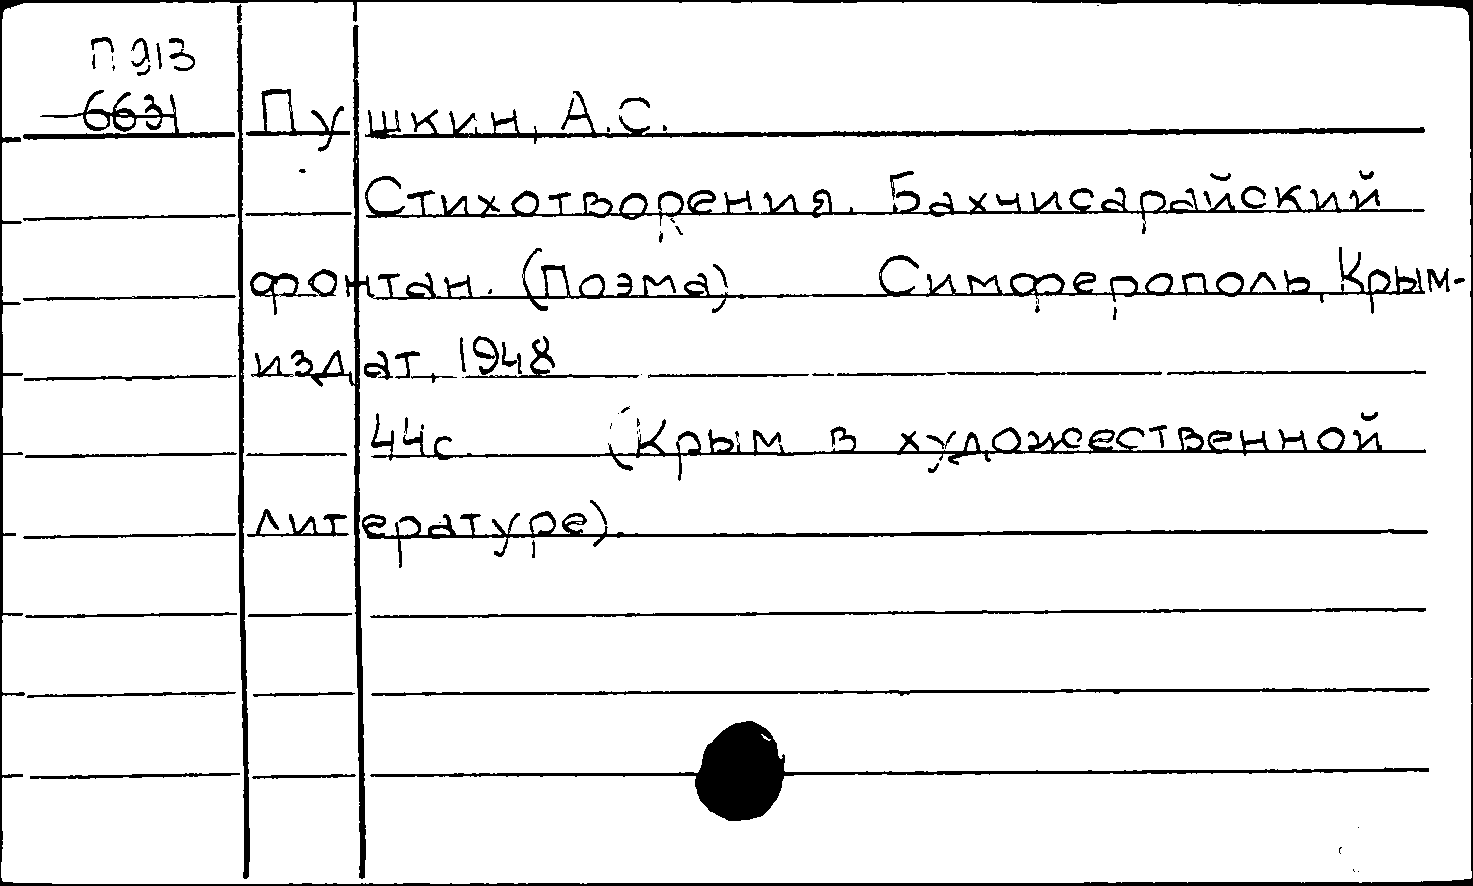 П 913
6631
Пушкин, А.С.
Стихотворения. Бахчисарайский
фонтан. (Поэма). Симферополь, Крым-
издат, 1948
44с. (Крым в художественной
литературе).